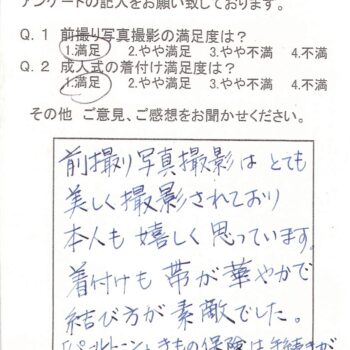 アンケートの記入をお願い致しております。
Q.１ 前撮り写真撮影の満足度は？
1.満足 2.やや満足 3.やや不満 4.不満
Q.２ 成人式の着付け満足度は？
1.満足 2.やや満足 3.やや不満 4.不満
その他 ご意見、ご感想をお聞かせください。
前撮り写真撮影は とても
美しく撮影されており
本人も 嬉しく 思っています。
着付けも 帯が華やかで
結び方が 素敵でした。
「パールトーン」きもの保険は手続きが